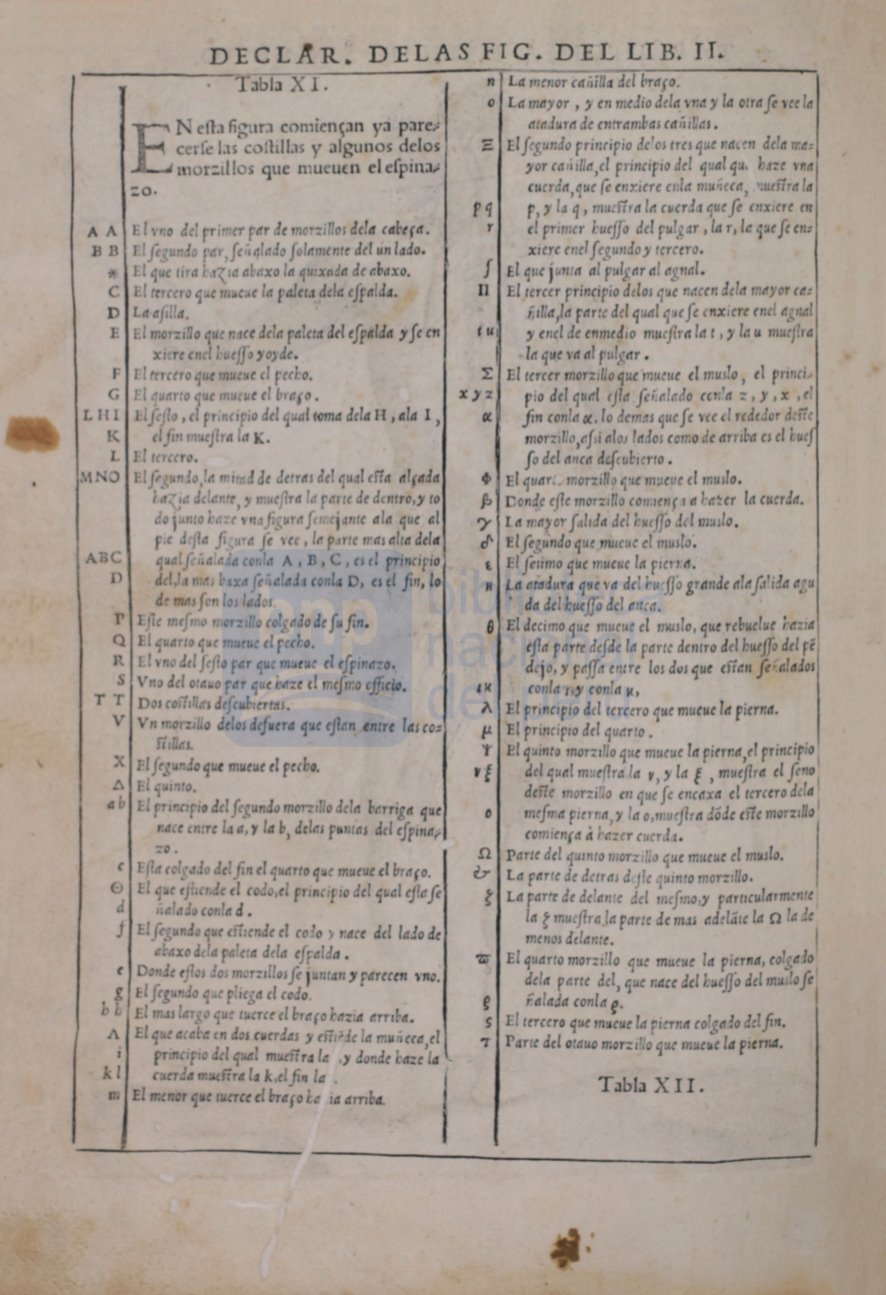 DECLAR. DELAS FIG. DEL LIB. II.
Tabla XI.
EN esta figura comiençan ya pare-
cerse las costillas y algunos delos
morzillos que mueuen el espina-
zo.
A A El vno del primer par de morzillos dela cabeça.
B B El segundo par, señalado solamente del un lado.
* El que tira hazia abaxo la quixada de abaxo.
C El tercero que mueue la paleta dela espalda.
D La asilla.
E El morzillo que nace dela paleta del espalda y se en
xiere enel huesso yoyde.
F El tercero que mueue el pecho.
G El quarto que mueue el braço.
L H I El sesto, el principio del qual toma dela H, ala I,
K el fin muestra la K.
L El tercero.
MNO El segundo, la mitad de detras del qual està alçada
hazia delante, y muestra la parte de dentro, y to
do junto haze vna figura semejante ala que al
pie desta figura se vee, la parte mas alta dela
ABC qual señalada conla A, B, C, es el principio
D del, la mas baxa señalada conla D, es el fin, lo
de mas son los lados.
P Este mesmo morzillo colgado de su fin.
Q El quarto que mueue el pecho.
R El vno del sesto par que mueue el espinazo.
S Vno del otauo par que haze el mesmo officio.
T T Dos costillas descubiertas.
V Vn morzillo delos defuera que estan entre las cos-
tillas.
X El segundo que mueue el pecho.
Δ El quinto.
a b El principio del segundo morzillo dela barriga que
nace entre la a, y la b, delas puntas del espina-
zo.
c Esta colgado del fin el quarto que mueue el braço.
Θ El que estiende el codo, el principio del qual esta se
d ñalado conla d.
f El segundo que estiende el codo y nace del lado de
abaxo dela paleta dela espalda.
e Donde estos dos morzillos se juntan y parecen vno.
g El segundo que pliega el codo.
h h El mas largo que tuerce el braço hazia arriba.
Λ El que acaba en dos cuerdas y estiẽde la muñeca, el
i principio del qual muestra la , y donde haze la
k l cuerda muestra la k, el fin la .
m El menor que tuerce el braço hazia arriba.
n La menor cañilla del braço.
o La mayor, y en medio dela vna y la otra se vee la
atadura de entrambas cañillas.
Ξ El segundo principio delos tres que nacen dela ma-
yor cañilla, el principio del qual haze vna
cuerda, que se enxiere enla muñeca, muestra la
p q p, y la q, muestra la cuerda que se enxiere en
r el primer huesso del pulgar, la r, la que se en-
xiere enel segundo y tercero.
ſ El que junta al pulgar al agnal.
Π El tercer principio delos que nacen dela mayor ca-
ñilla, la parte del qual que se enxiere enel agnal
t u y enel de enmedio muestra la t, y la u muestra
la que va al pulgar.
Σ El tercer morzillo que mueue el muslo, el princi-
x y z pio del qual esta señalado conla z, y, x, el
α fin conla α. lo demas que se vee el rededor deste
morzillo, assi alos lados como de arriba es el hues
so del anca descubierto.
Φ El quarto morzillo que mueue el muslo.
β Donde este morzillo comiença a hazer la cuerda.
γ La mayor salida del huesso del muslo.
δ El segundo que mueue el muslo.
ε El setimo que mueue la pierna.
η La atadura que va del huesso grande ala salida agu
da del huesso del anca.
θ El decimo que mueue el muslo, que rebuelue hazia
esta parte desde la parte dentro del huesso del pẽ
dejo, y passa entre los dos que estan señalados
ι κ conla ι, y conla κ,
λ El principio del tercero que mueue la pierna.
μ El principio del quarto.
Ψ El quinto morzillo que mueue la pierna, el principio
ν ξ del qual muestra la ν, y la ξ, muestra el seno
deste morzillo en que se encaxa el tercero dela
o mesma pierna, y la o, muestra dõde este morzillo
comiença à hazer cuerda.
Ω Parte del quinto morzillo que mueue el muslo.
& La parte de detras deste quinto morzillo.
ξ La parte de delante del mesmo, y particularmente
la ξ muestra la parte de mas adelãte la Ω la de
menos delante.
ϖ El quarto morzillo que mueue la pierna, colgado
dela parte del, que nace del huesso del muslo se
ρ ñalada conla ρ.
ς El tercero que mueue la pierna colgado del fin.
τ Parte del otauo morzillo que mueue la pierna.
Tabla XII.